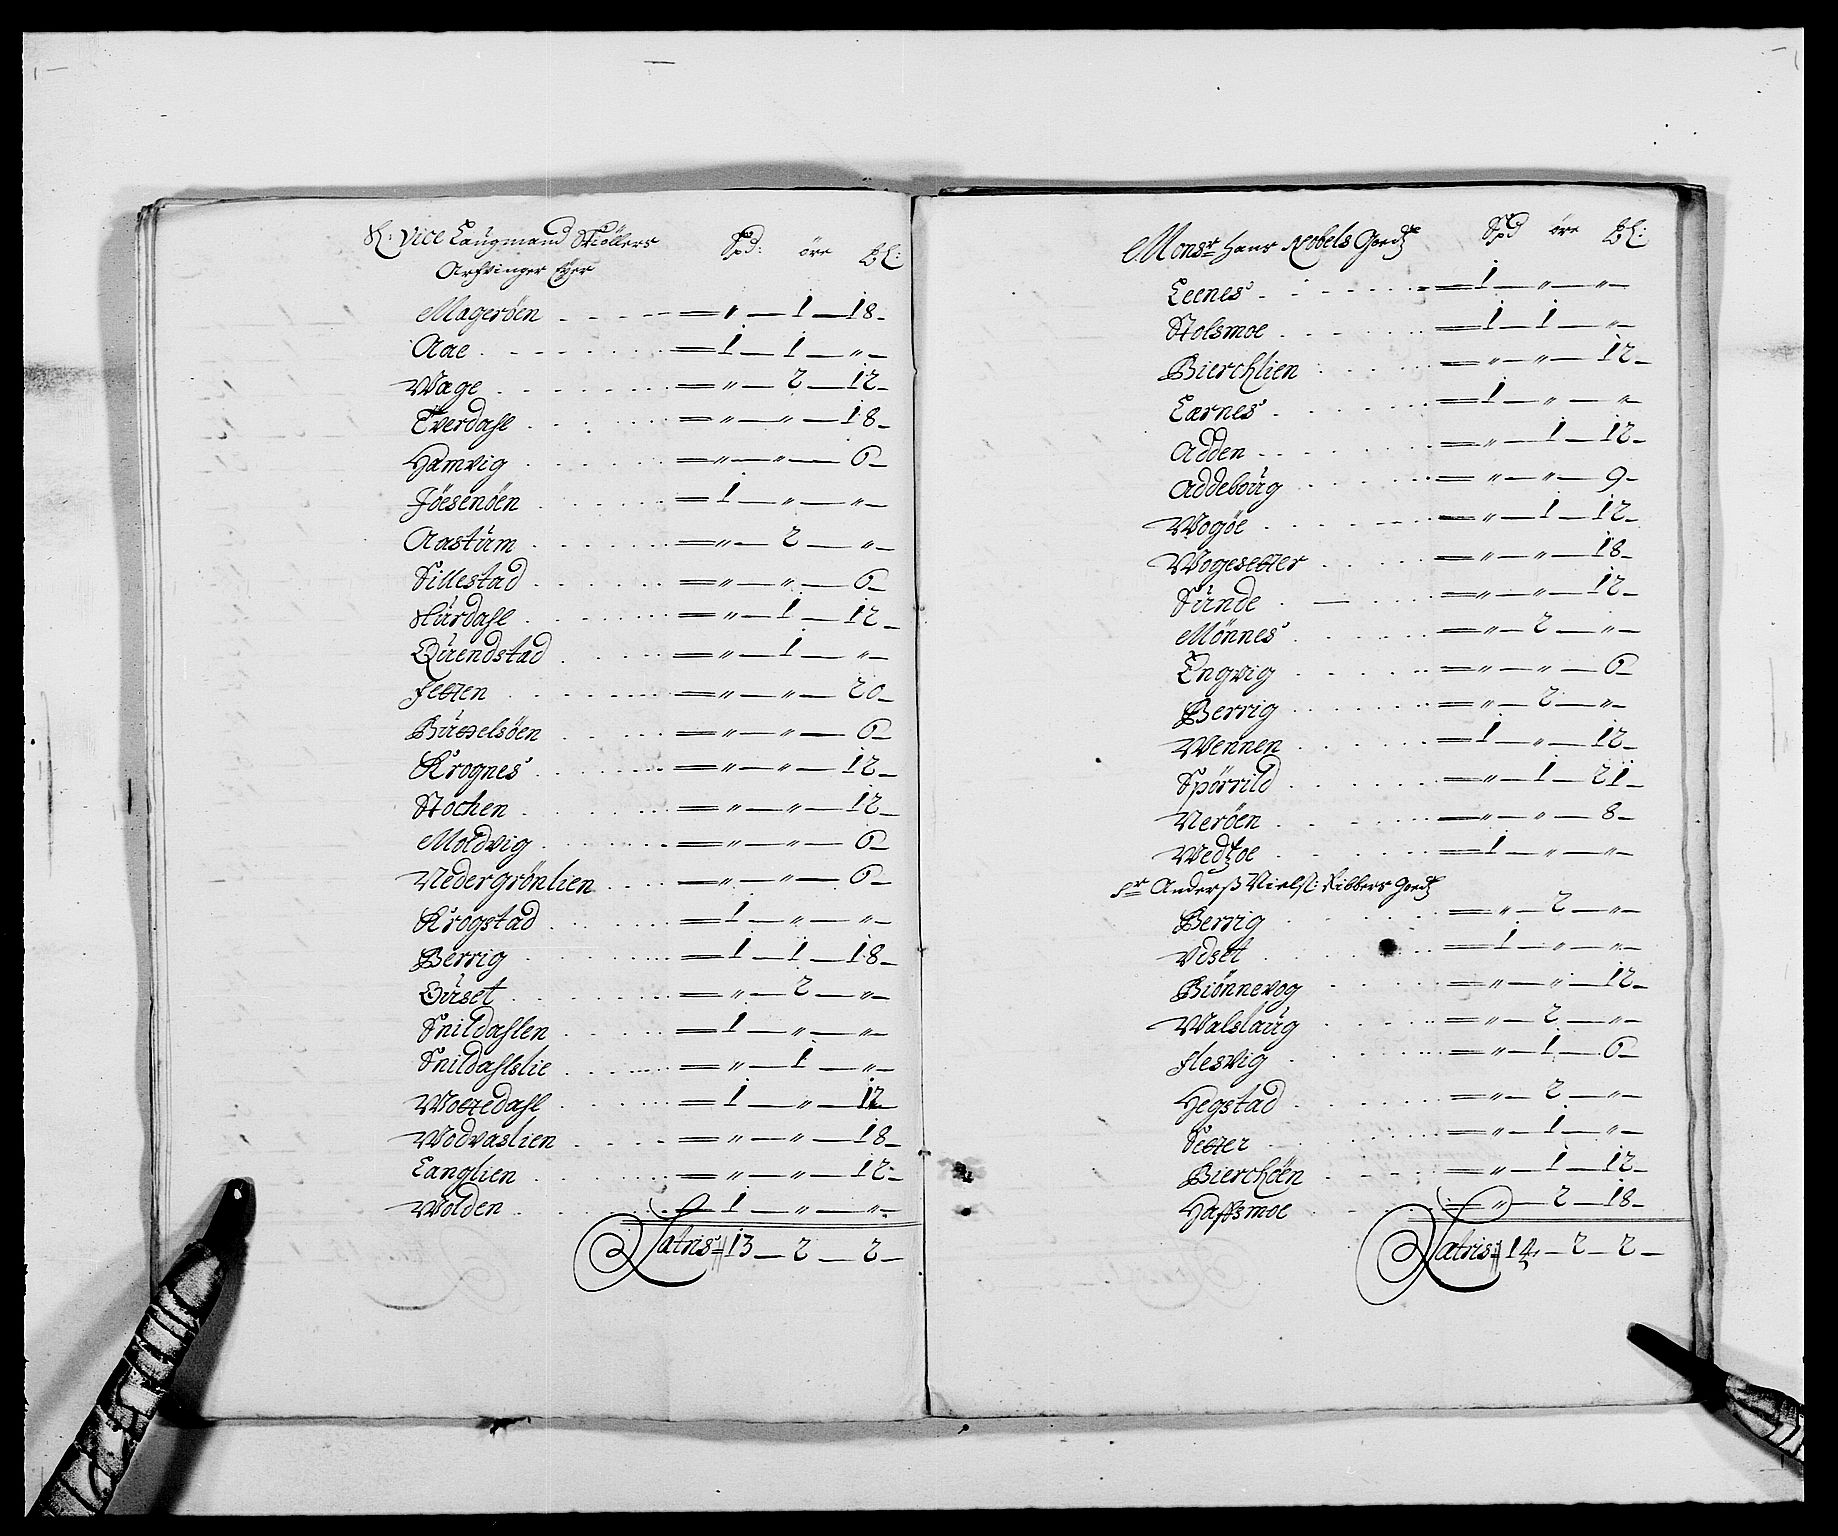 Sl: Vice Laugmand Stöllers Spd: öre Ml:
Arfvinger Eyer
Mageröen - - - - = " — 1 — 18 -
Aae - - - - = 1 — 1 — " -
Wage - - - - = " — 2 — 12 -
Tverdahl - - - - = " — " — 18 -
Hamvig - - - - = " — " — 6 -
Jöesenöen - - - - = 1 — " — " -
Aastum - - - - = " — 2 — " -
Sillestad - - - - = " — " — 6 -
Sturdahl - - - - = " — 1 — 12 -
Qvendstad - - - - = " — 1 — " -
Fetten - - - - = " — " — 20 -
Busselsöen - - - - = " — " — 6 -
Krognes - - - - = " — " — 12 -
Stochen - - - - = " — " — 12 -
Moldvig - - - - = " — " — 6 -
Nedergrönlien - - - - = " — " — 6 -
Krogstad - - - - = 1 — " — " -
Berrig - - - - = 1 — 1 — 18 -
Qvset - - - - = " — 2 — " -
Snildahlen - - - - = 1 — " — " -
Snildahlslie - - - - = " — 1 — " -
Wottedahl - - - - = 1 — " — 12
Wodvaslien - - - - = " — " — 18 -
Langlien - - - - = " — " — 12 -
Wolden - - - - = 1 — " — " -
Latris = 13 — 2 — 2 -
Monsr Hans Nobels Goedtz Spd öre Ml:
Leenes - - - - = 1 — " — " -
Stolsmoe - - - - = 1 — 1 — " -
Bierchlien - - - - = " — " — 12 -
Larnes - - - - = 1 — " — " -
Adden - - - - = " — 1 — 12 -
Addeboug - - - - = " — " — 9 -
Wogöe - - - - = " — 1 — 12 -
Wogesetter - - - - = " — " — 18 -
Sunde - - - - = " — " — 12 -
Mönnes - - - - = " — 2 — " -
Engvig - - - - = " — " — 6 -
Berrig - - - - = " — 2 — " -
Wennen - - - - = 1 — " — 12 -
Spörrild - - - - = " — 1 — 21 -
Neröen - - - - = " — " — 8 -
Wedtzoe - - - - = 1 — " — " -
Sr Anderß Nielß: Ribbers Goedtz
Berrig - - - - = " — 2 — " -
Udset - - - - = 1 — " — " -
Biönnevog - - - - = " — " — 12 -
Walslaug - - - - = " — 2 — " -
Flesvig - - - - = " — 1 — 6 -
Hegstad - - - - = " — 2 — " -
Setter - - - - = " — 1 — " -
Bierchöen - - - - = " — 1 — 12 -
Haffsmoe - - - - = " — 2 — 18 -
Latris = 14 — 2 — 2 —